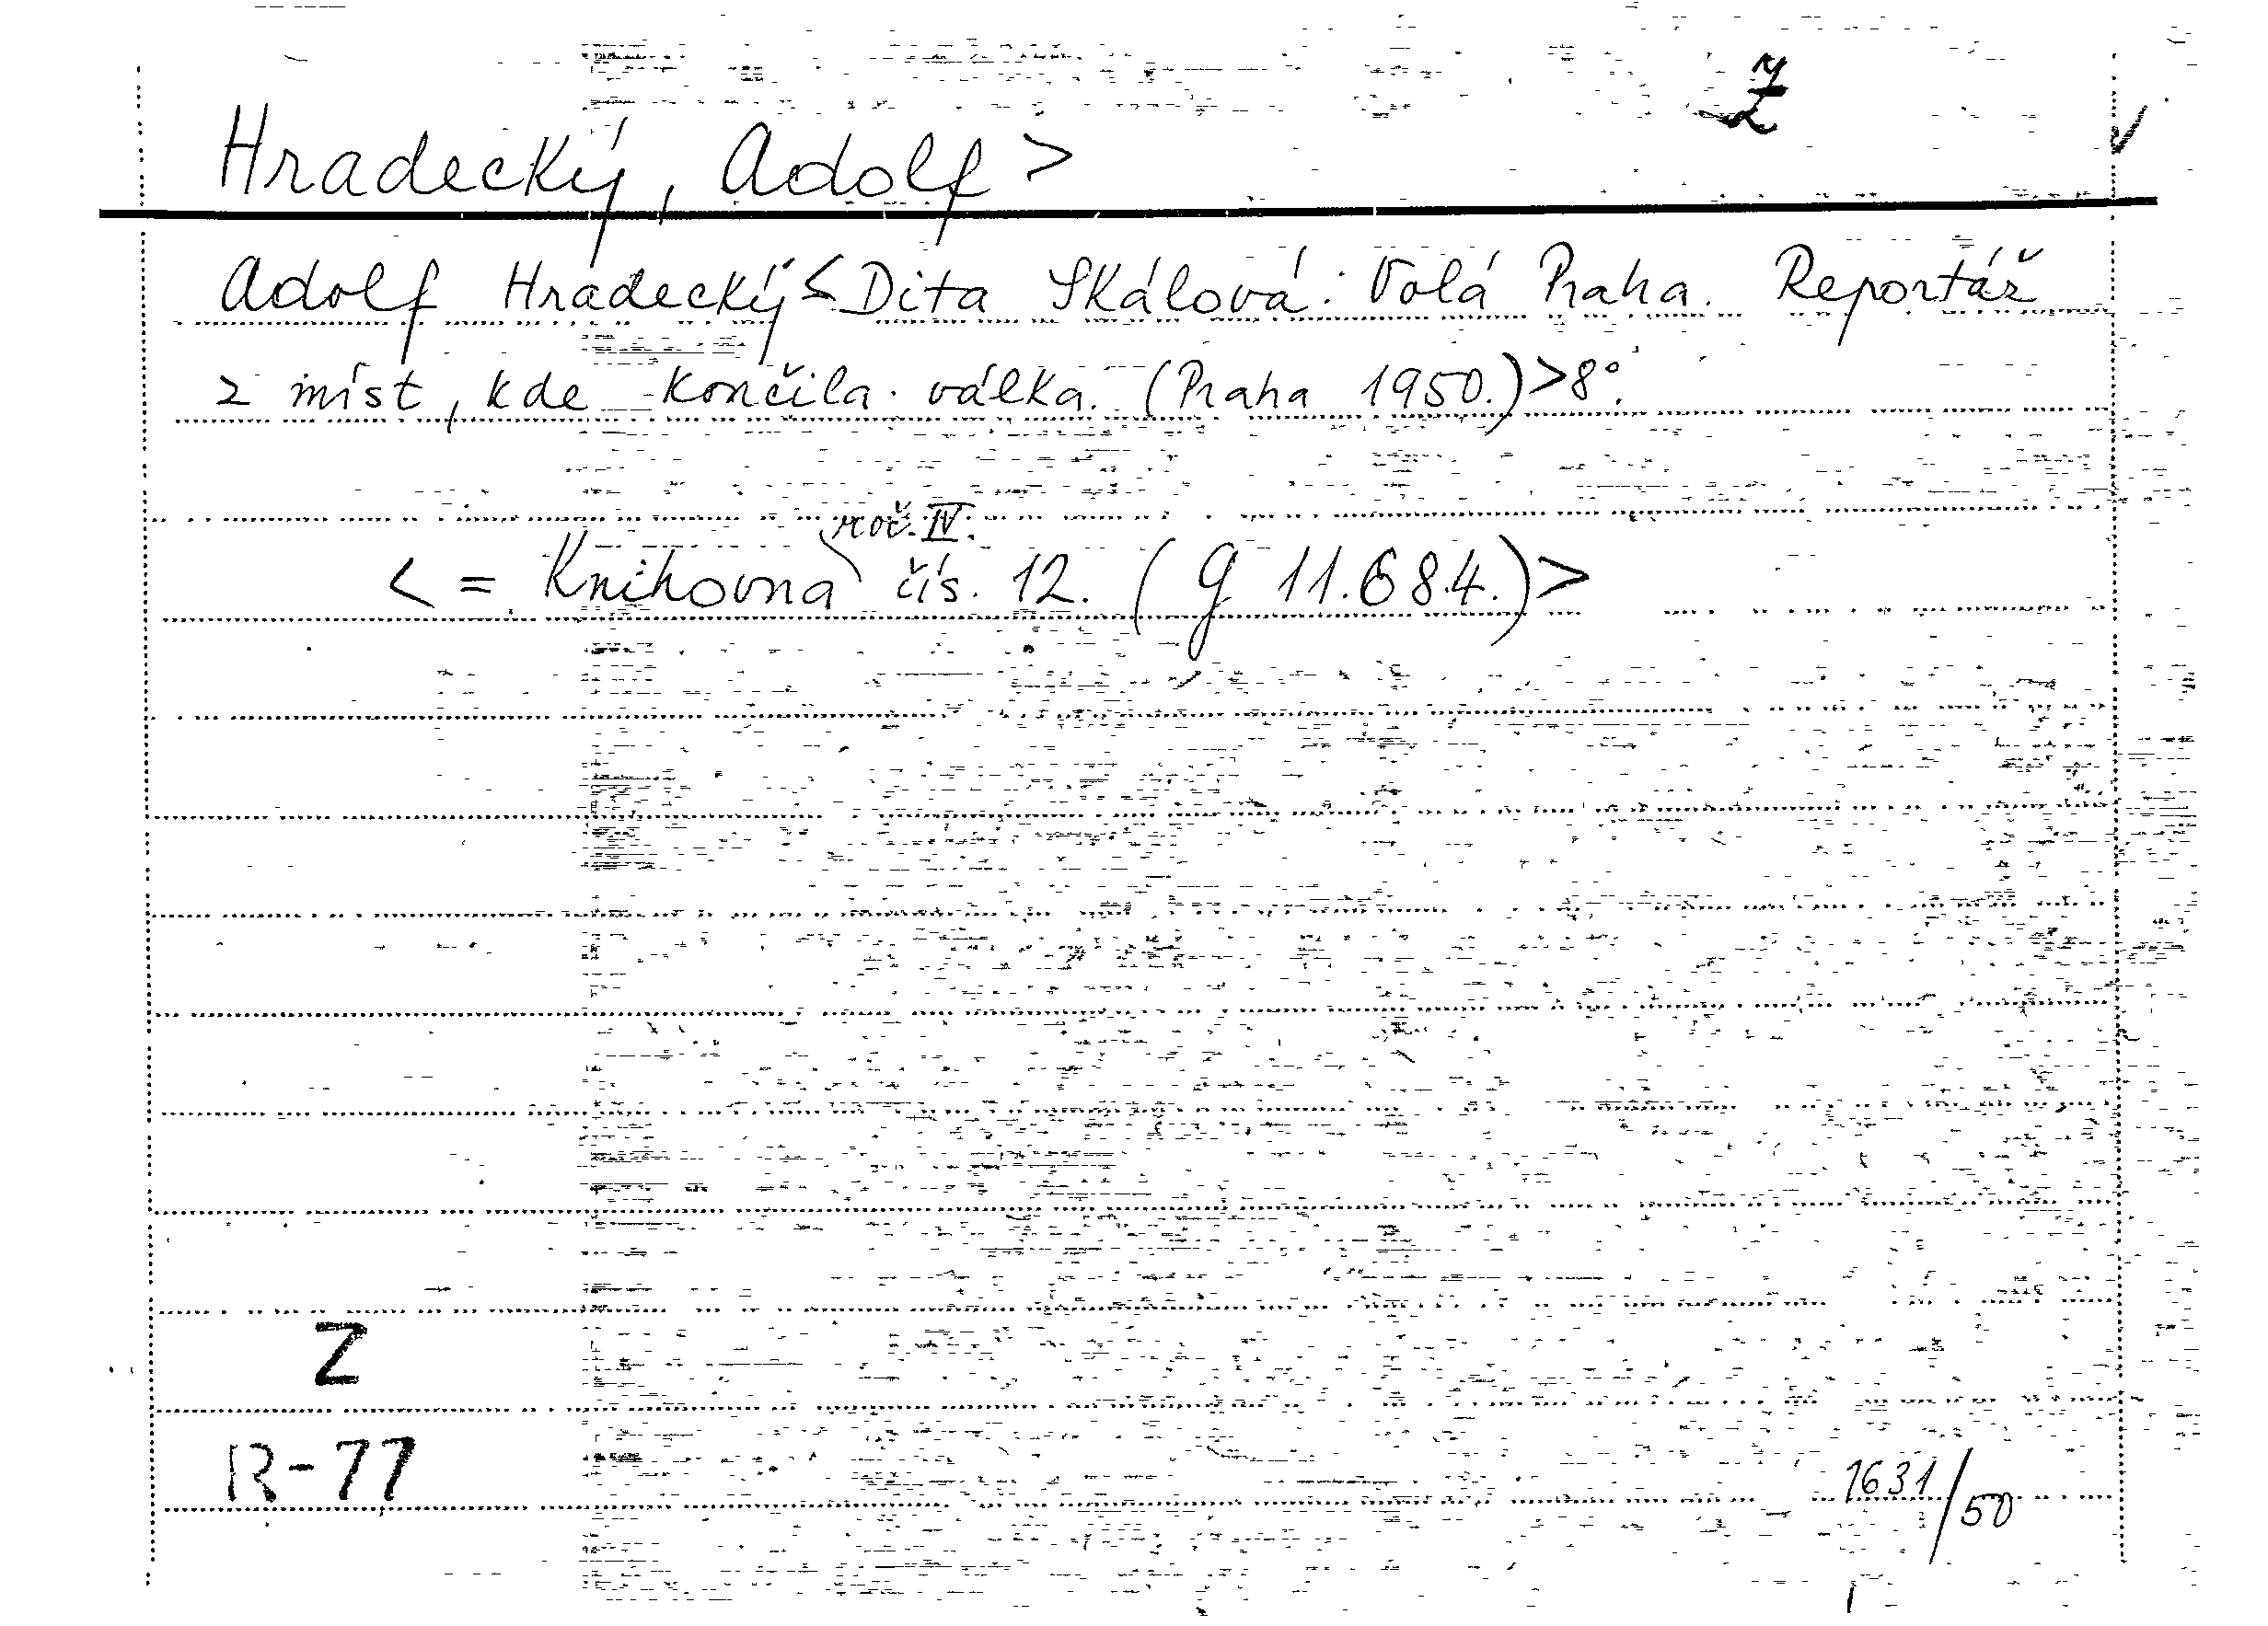 Z
Hradecký, Adolf >
Adolf Hradecký < Dita Skálová: Volá Praha. Reportáž
z míst, kde končila válka. (Praha 1950.) > 8°.
roč. IV.
< = Knihovna čís. 12. (g 11.684.) >
Z
R-77
1631/50